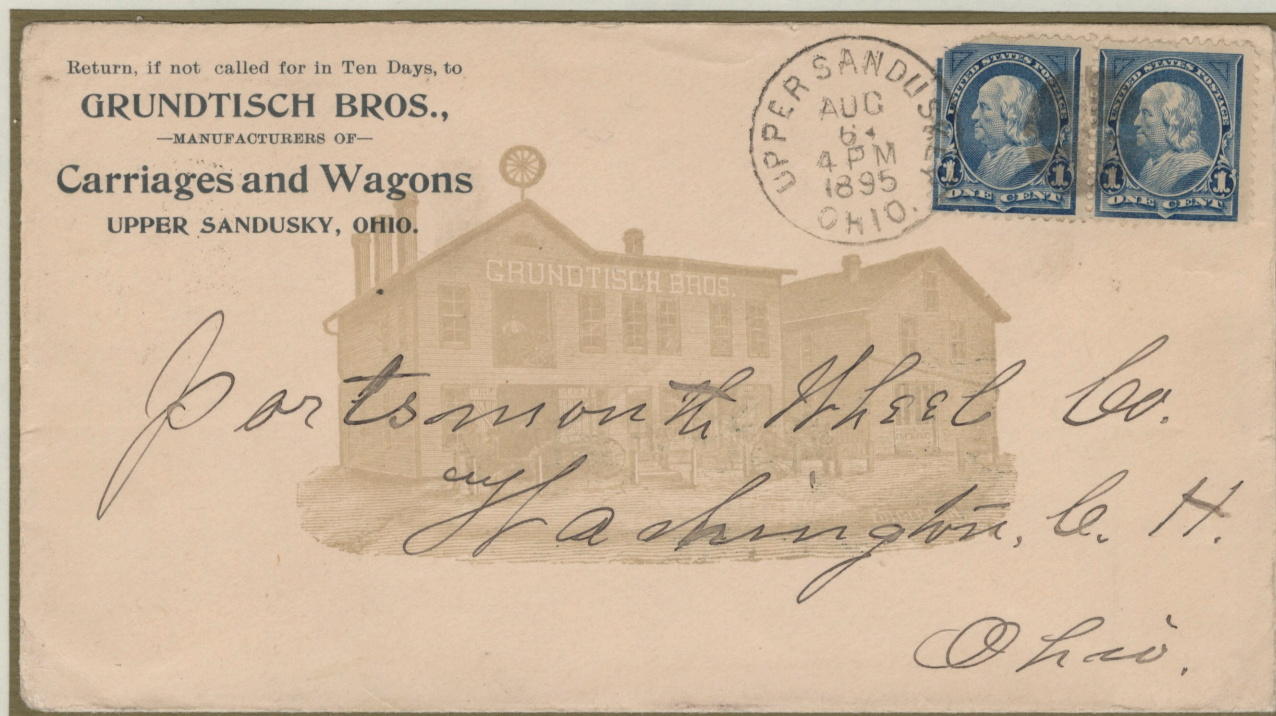 Return, if not called for in Ten Days, to
GRUNDTISCH BROS.,
—MANUFACTURERS OF—
Carriages and Wagons
UPPER SANDUSKY, OHIO.
UPPER SANDUSKY
AUG
6
4 PM
1895
OHIO.
UNITED STATES POSTAGE
1 1
ONE CENT
UNITED STATES POSTAGE
1 1
ONE CENT
GRUNDTISCH BROS.
Portsmouth Wheel Co.
Washington, C. H.
Ohio.